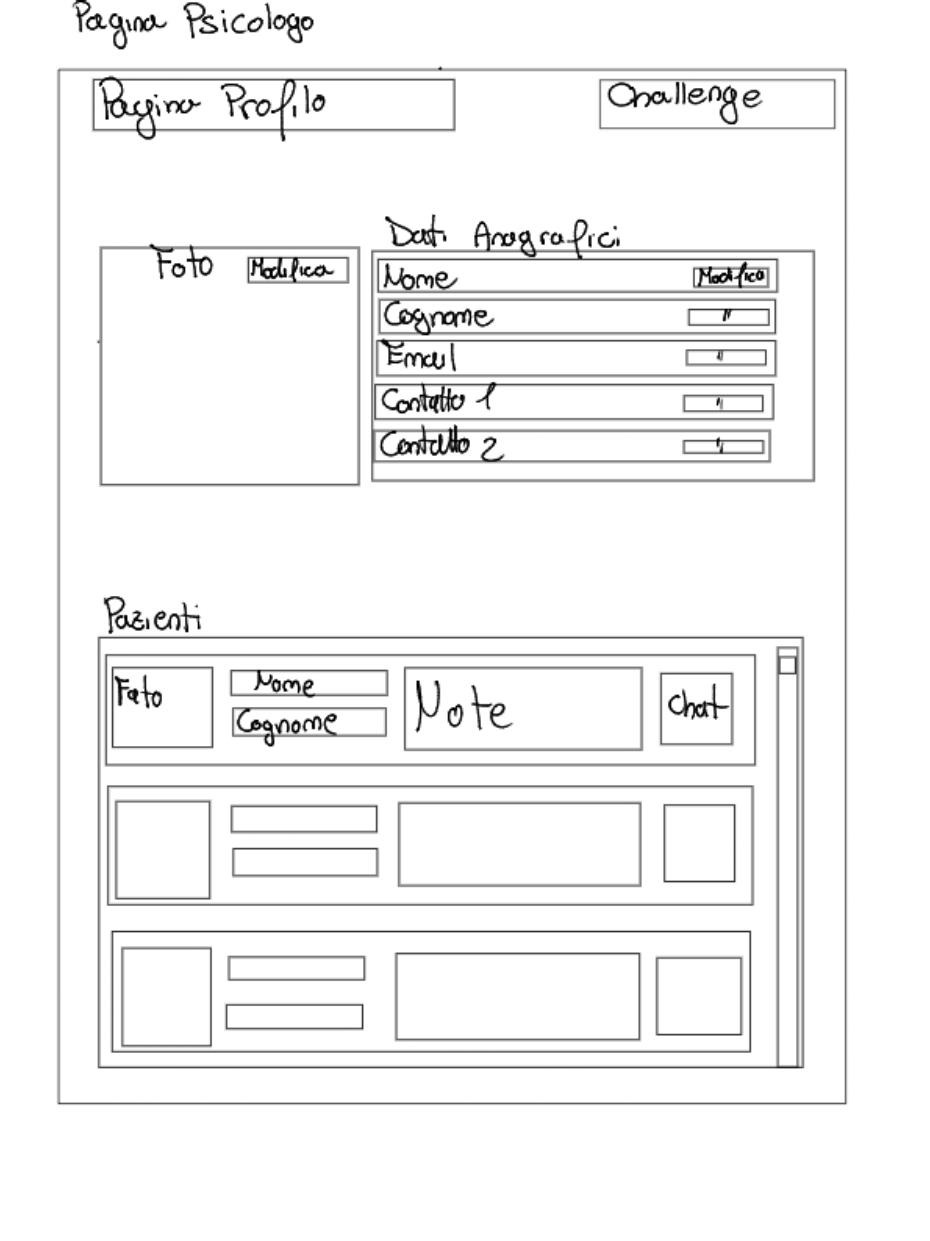 Pagina Psicologo
Pagina Profilo
Challenge
Foto
Modifica
Dati Anagrafici
Nome
Modifica
Cognome
"
Email
"
Contatto 1
"
Contatto 2
"
Pazienti
Foto
Nome
Cognome
Note
Chat